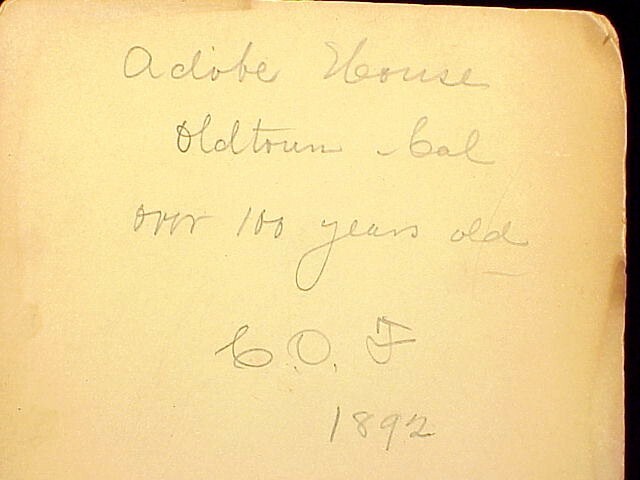 Adobe House
Oldtown - Cal
over 100 years old
C. O. F
1892